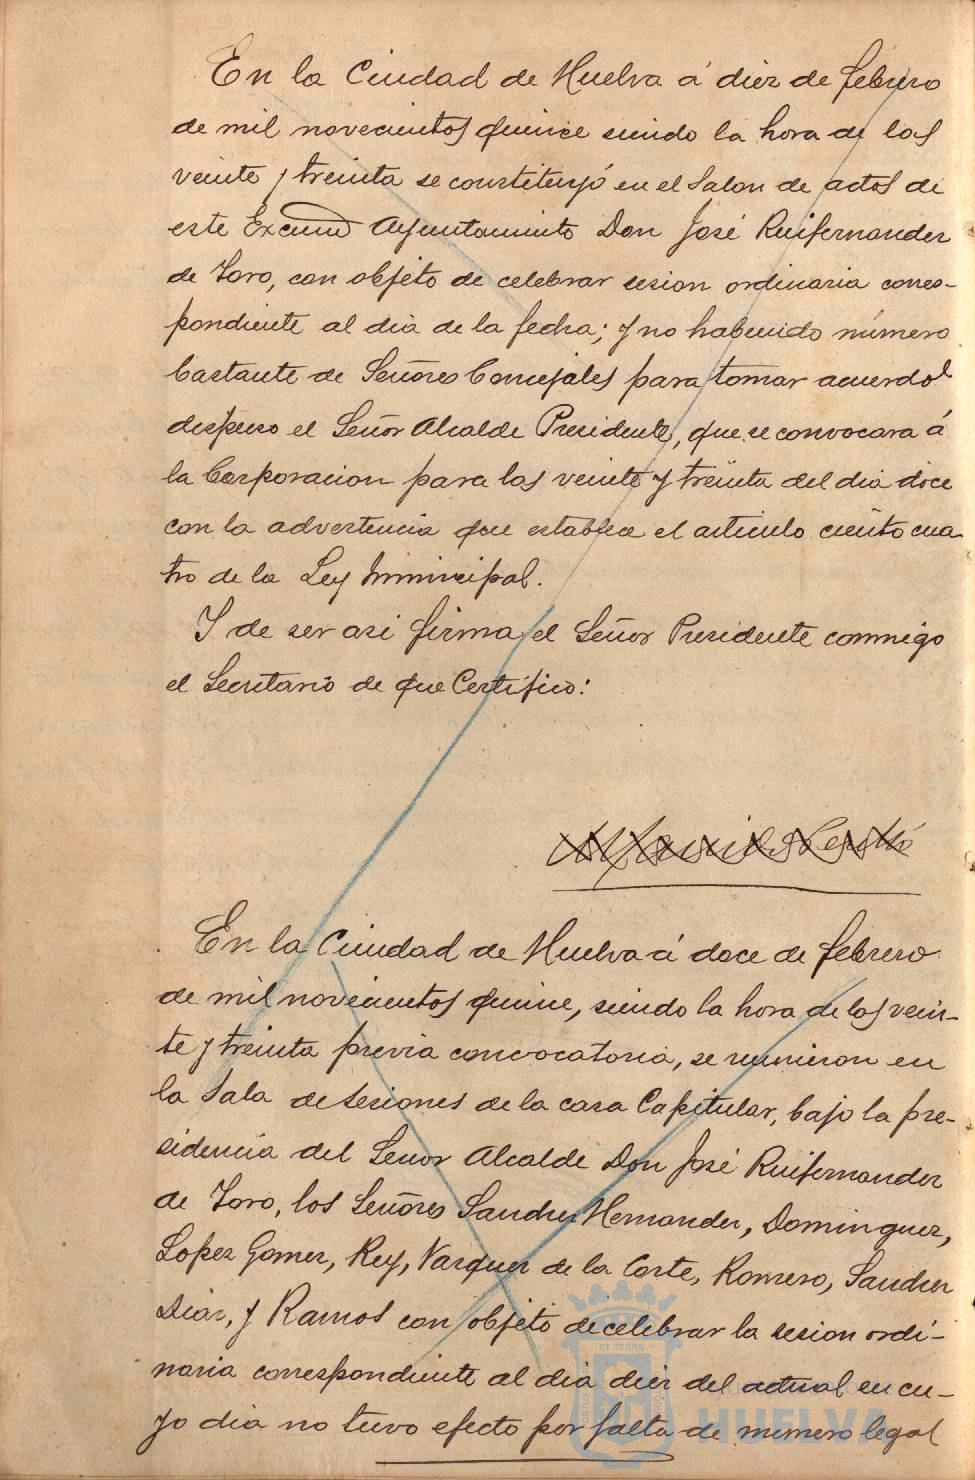 En la Ciudad de Huelva á diez de febrero
de mil novecientos quince siendo la hora de las
veinte y treinta se constituyó en el Salon de actos de
este Excmo Ayuntamiento Don José Ruifernandez
de Toro, con objeto de celebrar sesion ordinaria corres-
pondiente al dia de la fecha; y no habiendo número
bastante de Señores Concejales para tomar acuerdos
dispuso el Señor Alcalde Presidente, que se convocara á
la Corporacion para las veinte y treinta del dia doce
con la advertencia que establece el articulo ciento cua-
tro de la Ley Municipal.
Y de ser asi firma el Señor Presidente conmigo
el Secretario de que Certifico:
En la Ciudad de Huelva á doce de febrero
de mil novecientos quince, siendo la hora de las vein-
te y treinta previa convocatoria, se reunieron en
la Sala de Sesiones de la casa Capitular, bajo la pre-
sidencia del Señor Alcalde Don José Ruifernandez
de Toro, los Señores Sanchez Hernandez, Dominguez,
Lopez Gomez, Rey, Vazquez de la Corte, Romero, Sanchez
Diaz, y Ramos con objeto de celebrar la sesion ordi-
naria correspondiente al dia diez del actual en cu-
yo dia no tuvo efecto por falta de numero legal
HUELVA